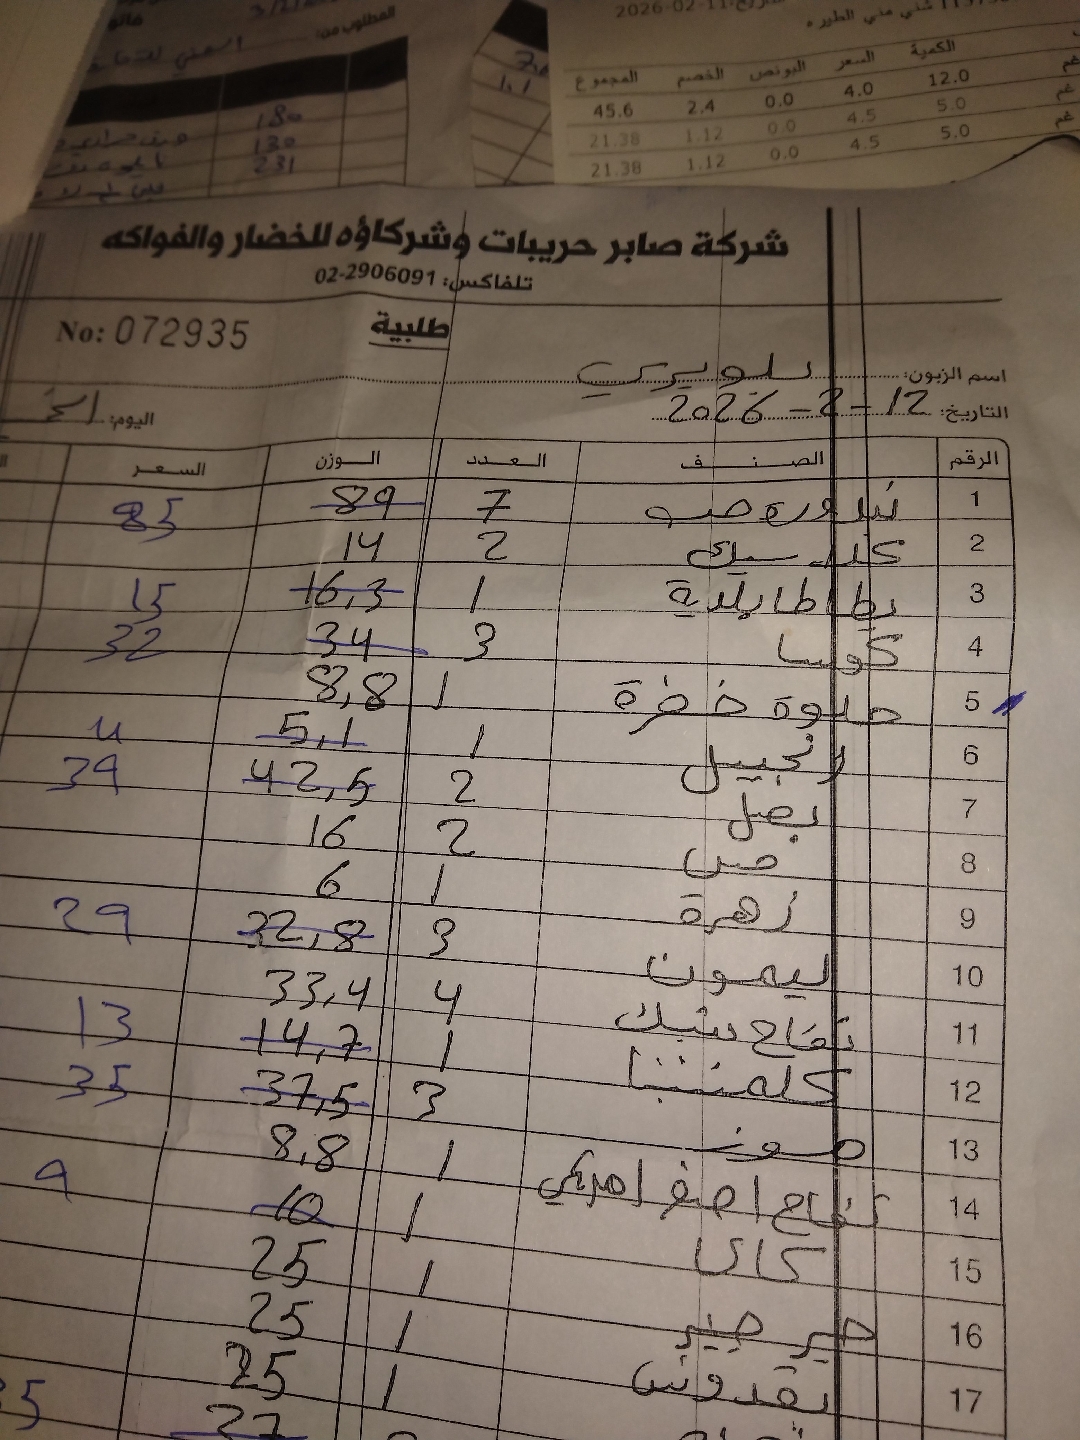 المطلوب من:
180
130
231
2026-02-11
الكمية السعر البونص الخصم المجموع
12.0 4.0 0.0 2.4 45.6
5.0 4.5 0.0 1.12 21.38
5.0 4.5 0.0 1.12 21.38
شركة صابر حريبات وشركاؤه للخضار والفواكه
تلفاكس: 02-2906091
طلبية
No: 072935
اسم الزبون:
التاريخ: 12-2-2026 اليوم:
الرقم الصنف العدد الوزن السعر
1 7 89 85
2 2 14
3 بطاطا بلدية 1 16,3 15
4 كوسا 3 34 32
5 حلوة خضرة 1 8,8
6 1 5,1 4
7 بصل 2 42,5 39
8 خس 2 16
9 زهرة 1 6
10 ليمون 3 32,8 29
11 تفاح 4 33,4
12 كلمنتينا 1 14,7 13
13 موز 3 37,5 35
14 تفاح اصفر امريكي 1 8,8
15 كاكا 1 10 9
16 جرجير 1 25
17 بقدونس 1 25
1 25